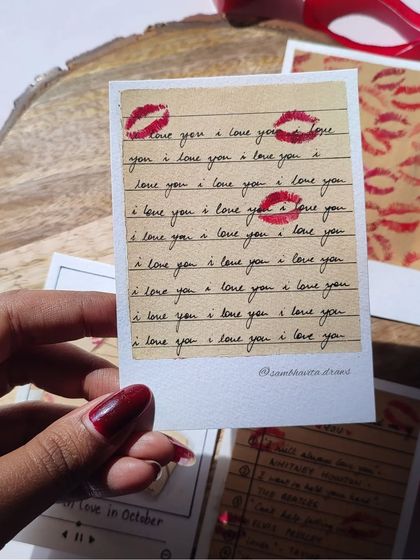 i love you i love you i love
you i love you i love you i
love you i love you i love you
i love you i love you i love you
i love you i love you i love you
i love you i love you i love you
i love you i love you i love you
i love you i love you i love you
i love you i love you i love you
@sambhavita.draws
Love in October
YOU
"I will always love you"
WHITNEY HOUSTON
"I want to hold your hand"
THE BEATLES
"Can't help falling
ELVIS PRESLEY